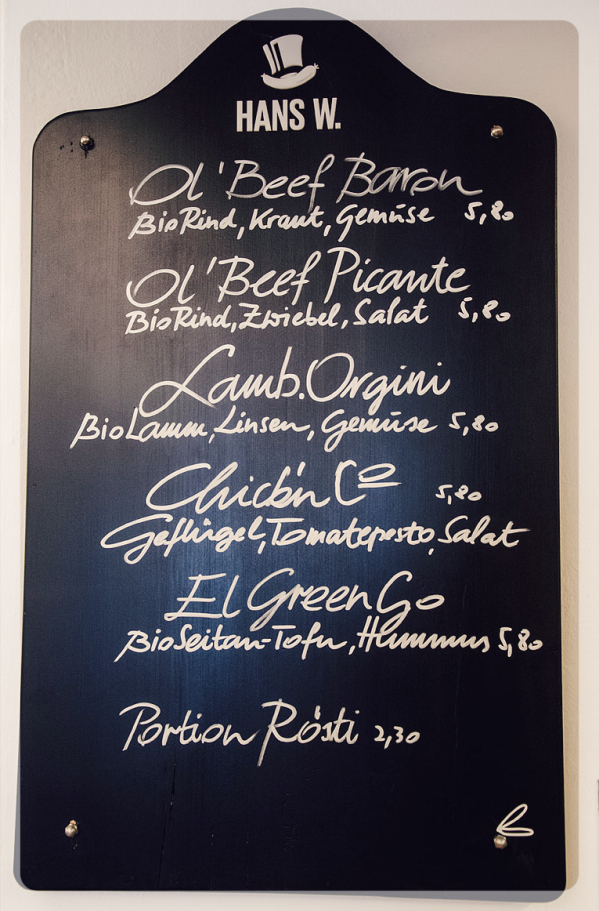 HANS W.
Ol' Beef Barron
BioRind, Kraut, Gemüse 5,80
Ol' Beef Picante
BioRind, Zwiebel, Salat 5,80
Lamb.Orgini
BioLamm, Linsen, Gemüse 5,80
Chick'n Co 5,80
Geflügel, Tomatepesto, Salat
El Green Go
BioSeitan-Tofu, Hummus 5,80
Portion Rösti 2,30